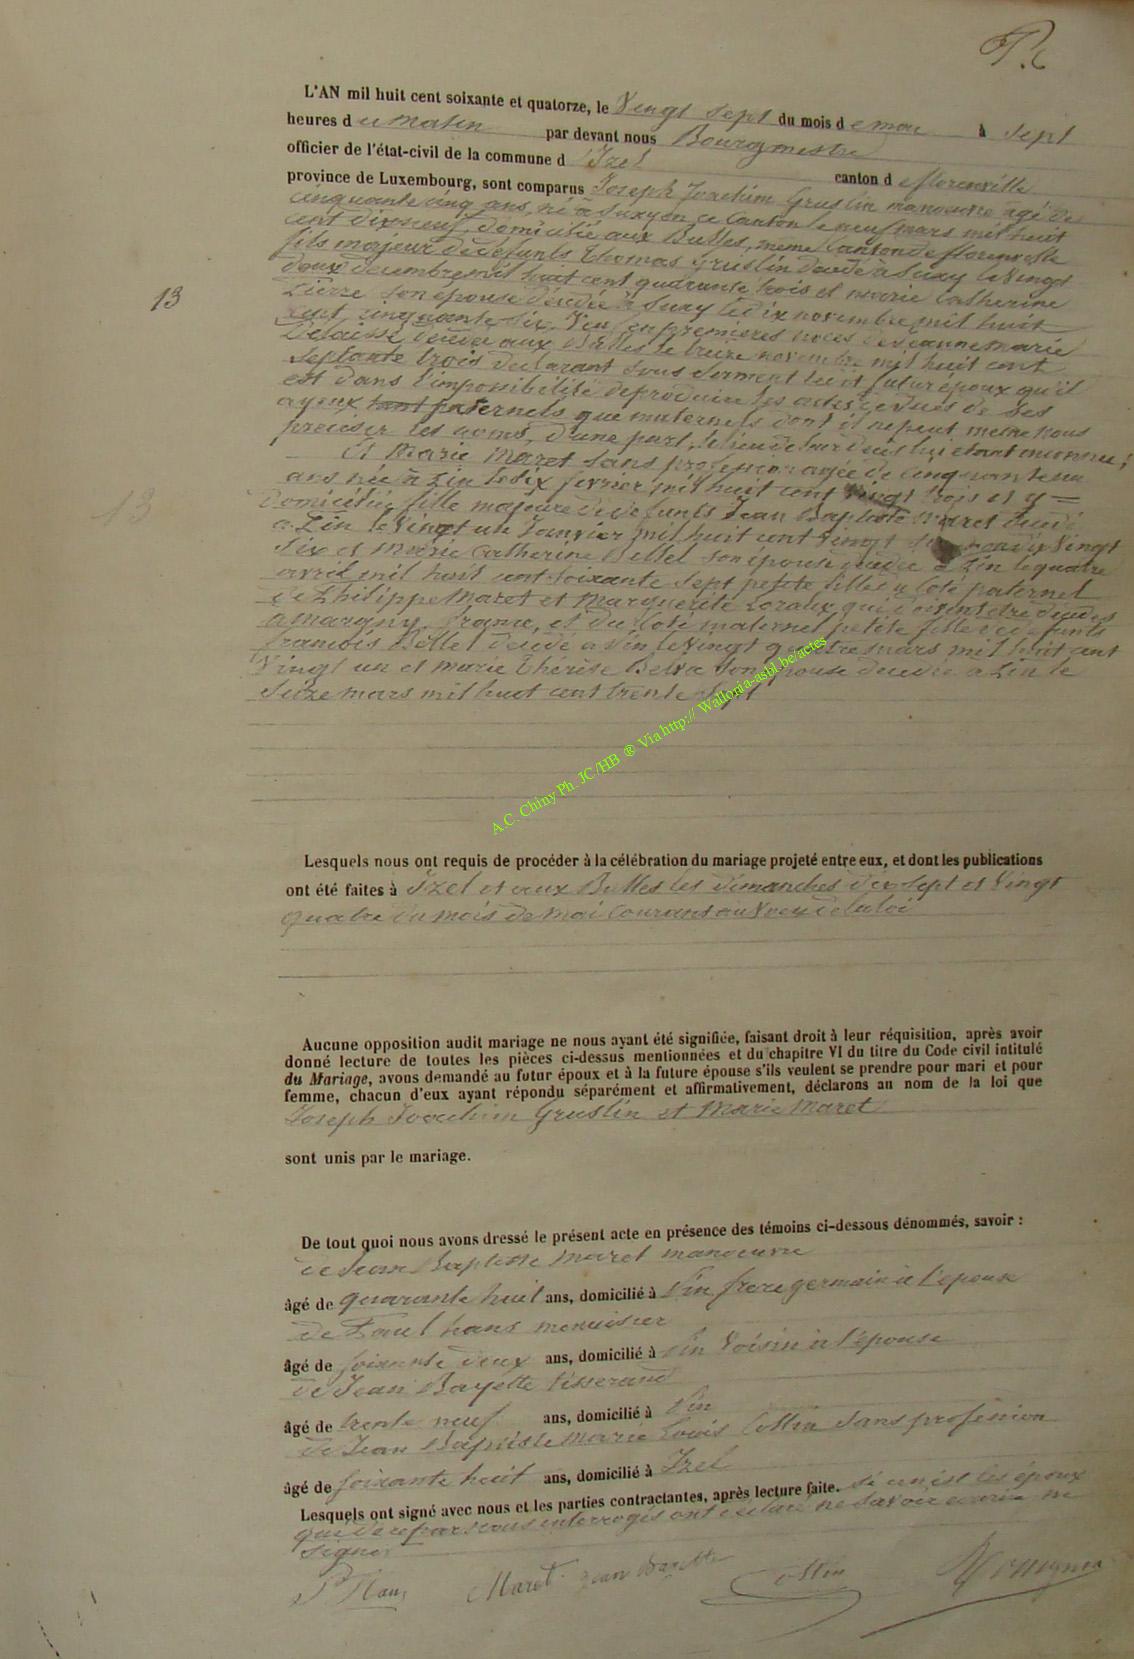 L'AN mil huit cent soixante et quatorze, le Vingt sept du mois de mai à sept
heures du matin par devant nous Bourgmestre
officier de l'état-civil de la commune d'Izel canton de florenville
province de Luxembourg, sont comparus Joseph Joachim Gruslin manoeuvre agé de
cinquante cinq ans, né à Suxy en ce Canton le neuf mars mil huit
cent dix neuf, domicilié aux Bulles, meme Canton de florenville
fils majeur de defunts Thomas Gruslin decedé à Suxy le Vingt
deux decembre mil huit cent quarante trois et marie Catherine
Pierre son epouse décedée à Suxy le dix novembre mil huit
cent cinquante six, Veuf en premieres noces de Jeanne marie
décédée aux Bulles le treize novembre mil huit cent
septante trois declarant sous serment le dit futur époux qu'il
13
est dans l'impossibilité de produire les actes de décès de ses
ayeux tant paternels que maternels dont il ne peut meme nous
preciser les noms, d'une part, le lieu de leur deces lui etant inconnu;
Et Marie Maret sans profession agée de cinquante un
ans née à Pin le dix fevrier mil huit cent Vingt trois et y
domiciliée, fille majeure de defunts Jean Baptiste Maret decedé
13
a Pin le Vingt un Janvier mil huit cent Vingt
six et Marie Catherine Bellel son épouse decedée à Pin le quatre
avril mil huit cent soixante sept petite fille du Coté paternel
de Philippe Maret et Marguerite qui doivent etre decedes
a Margny, france, et du Coté maternel petite fille de defunts
francois Bellel decedé a Pin le Vingt quatre mars mil huit cent
Vingt un et marie Thérèse son epouse decedée a Pin le
seize mars mil huit cent trente sept
A.C. Chiny Ph. JC/HB ® Via http:// Wallonia-asbl.be/actes
Lesquels nous ont requis de procéder à la célébration du mariage projeté entre eux, et dont les publications
ont été faites à Izel et aux Bulles les dimanches dix sept et Vingt
quatre du mois de mai Courans au Voeu de la loi
Aucune opposition audit mariage ne nous ayant été signifiée, faisant droit à leur réquisition, après avoir
donné lecture de toutes les pièces ci-dessus mentionnées et du chapitre VI du titre du Code civil intitulé
du Mariage, avons demandé au futur époux et à la future épouse s'ils veulent se prendre pour mari et pour
femme, chacun d'eux ayant répondu séparément et affirmativement, déclarons au nom de la loi que
Joseph Joachim Gruslin et Marie Maret
sont unis par le mariage.
De tout quoi nous avons dressé le présent acte en présence des témoins ci-dessous dénommés, savoir :
de Jean Baptiste Maret manoeuvre
âgé de quarante huit ans, domicilié à Pin frere germain à l'epouse
de Paul hans menuisier
âgé de soixante deux ans, domicilié à Pin Voisin à l'épouse
de Jean Bayette tisserand
âgé de trente neuf ans, domicilié à Pin
de Jean Baptiste Marie Louis Collin sans profession
âgé de soixante huit ans, domicilié à Izel
Lesquels ont signé avec nous et les parties contractantes, après lecture faite. si ce n'est les époux
que de ce par nous interrogés ont declaré ne savoir ecrire ne
signer
P Hans Maret Jean Baptiste Collin